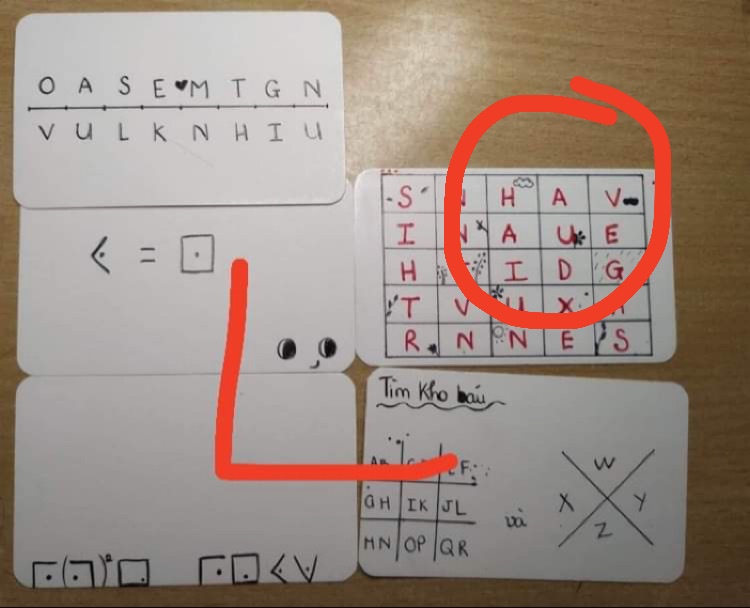 O A S E ♥ M T G N
V U L K N H I U
=
S N H A V
I N A U E
H I D G
T V U X
R N N E S
Tìm Kho báu
F
GH IK JL
MN OP QR
và
W
X Y
Z